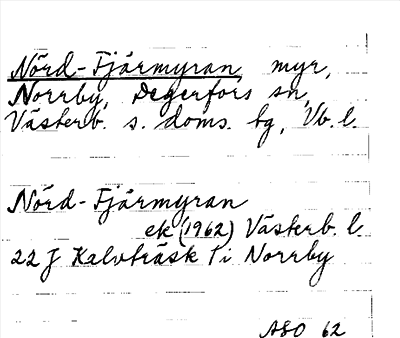 Nörd-Fjärmyran, myr,
Norrby, Degerfors sn,
Västerb. s. doms. tg, Vb. l.
Nörd-Fjärmyran
ek (1962) Västerb. l.
22 J Kalvträsk i Norrby
ASO 62